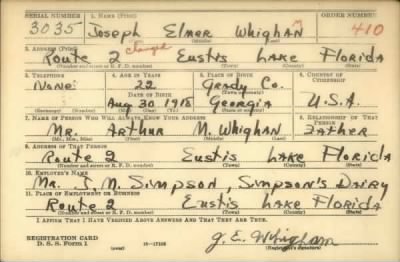 SERIAL NUMBER 1. NAME (Print) ORDER NUMBER
3035 Joseph Elmer Whighan m 410
2. ADDRESS (Print) changed
Route 2 Eustis Lake Florida
(Number and street or R. F. D. number) (Town) (County) (State)
3. TELEPHONE 4. AGE IN YEARS 5. PLACE OF BIRTH 6. COUNTRY OF CITIZENSHIP
None 22 Grady Co.
DATE OF BIRTH
Aug 30 1918 Georgia U.S.A.
(Exchange) (Number) (Mo.) (Day) (Yr.) (State or country)
7. NAME OF PERSON WHO WILL ALWAYS KNOW YOUR ADDRESS 8. RELATIONSHIP OF THAT PERSON
Mr. Arthur M. Whighan Father
(Mr., Mrs., Miss) (First) (Middle) (Last)
9. ADDRESS OF THAT PERSON
Route 2 Eustis Lake Florida
(Number and street or R. F. D. number) (Town) (County) (State)
10. EMPLOYER'S NAME
Mr. J. N. Simpson, Simpson's Dairy
11. PLACE OF EMPLOYMENT OR BUSINESS
Route 2 Eustis Lake Florida
(Number and street or R. F. D. number) (Town) (County) (State)
I AFFIRM THAT I HAVE VERIFIED ABOVE ANSWERS AND THAT THEY ARE TRUE.
REGISTRATION CARD
D. S. S. Form 1 (over) J. E. Whigham
(Registrant's signature)